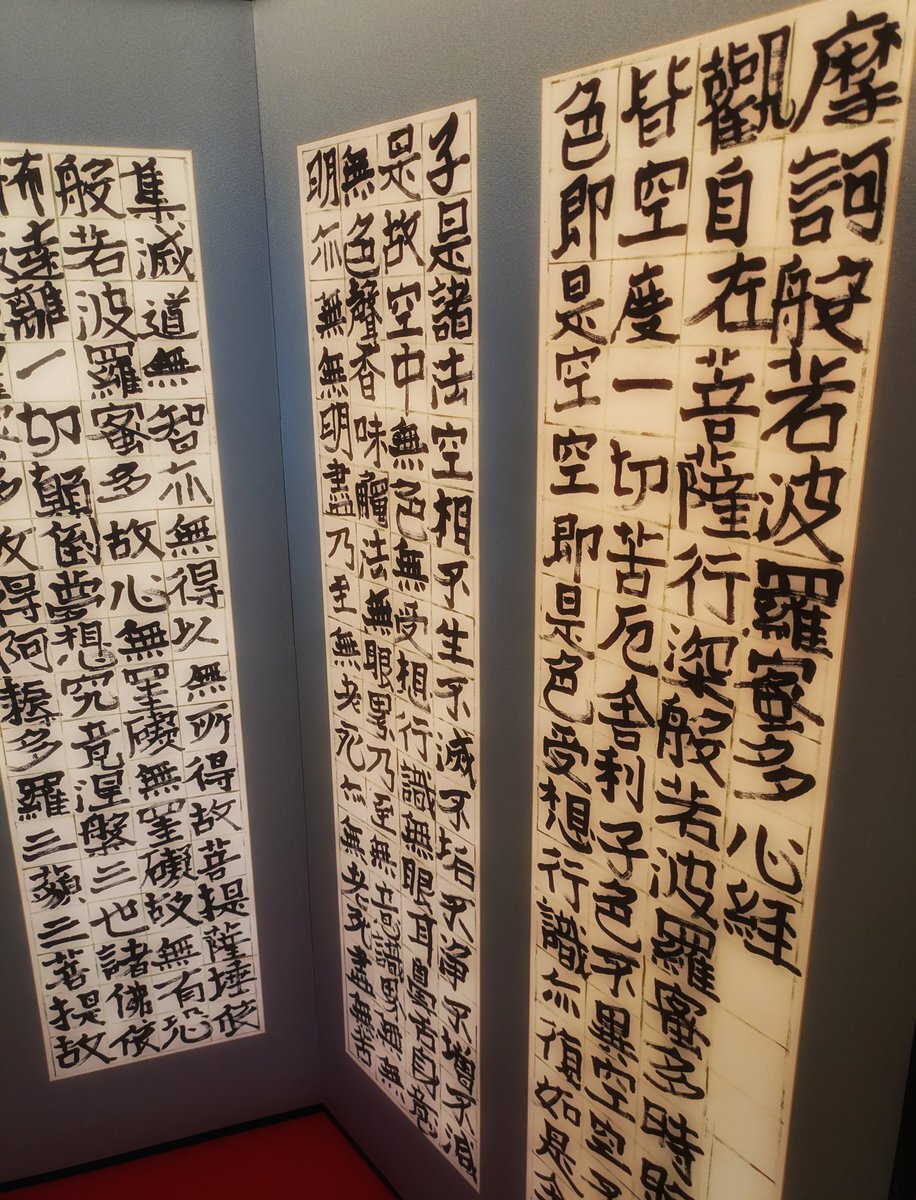 摩訶般若波羅蜜多心経
觀自在菩薩行深般若波羅蜜多時
皆空度一切苦厄舎利子色不異空空不
色即是空空即是色受想行識亦復如是
子是諸法空相不生不滅不垢不淨不增不減
是故空中無色無受想行識無眼耳鼻舌身意
無色聲香味觸法無眼界乃至無意識界無無
明亦無無明盡乃至無老死亦無老死盡無苦
集滅道無智亦無得以無所得故菩提薩埵依
般若波羅蜜多故心無罣礙無罣礙故無有恐
怖遠離一切顛倒夢想究竟涅槃三世諸佛依
多故得阿耨多羅三藐三菩提故